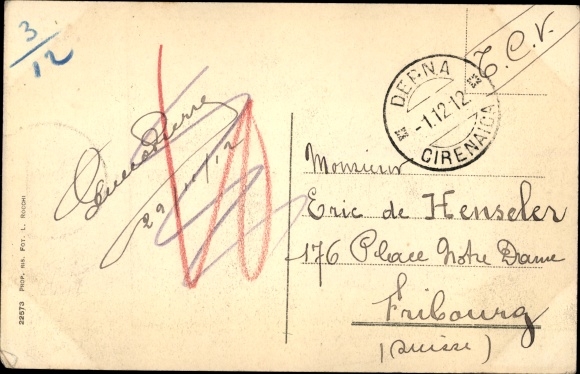 3/12
T.C.V.
DERNA
-1.12.12
CIRENAICA
29/11/12
Monsieur
Eric de Henseler
176 Place Notre Dame
Fribourg
(Suisse)
22573 PROP. RIS. FOT. L. ROCCHI